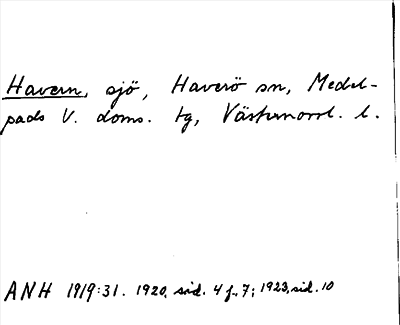 Havern, sjö, Haverö sn, Medel-
pads V. doms. tg, Västernorrl. l.
ANH 1919:31. 1920, sid. 4 f., 7; 1923, sid. 10